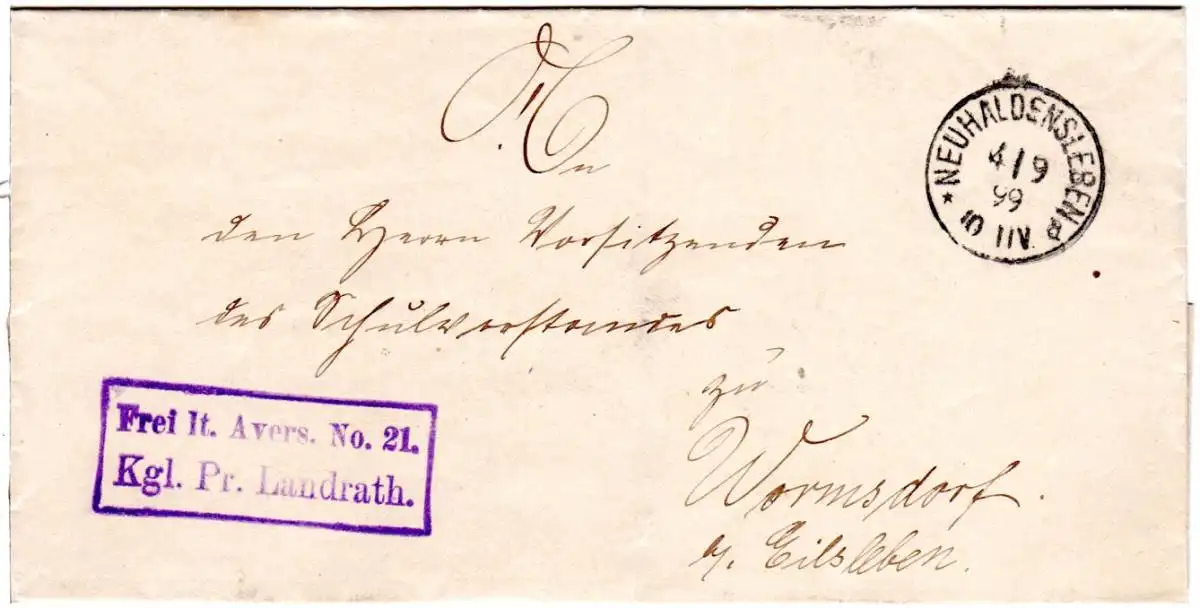 An
den Herrn Vorsitzenden
des Schulvorstandes
zu
Wormsdorf.
b/. Eilsleben.
NEUHALDENSLEBEN
4/9
99
Frei lt. Avers. No. 21.
Kgl. Pr. Landrath.